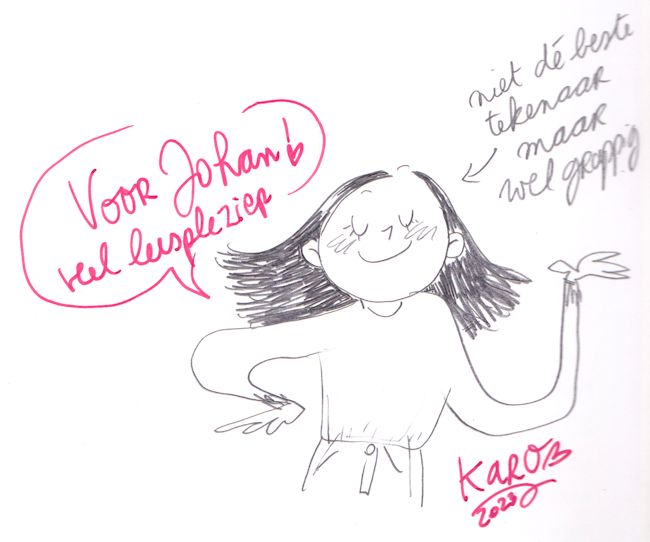 Voor Johan!
veel leesplezier
niet dé beste
tekenaar
maar
wel grappig
KAROB
2023